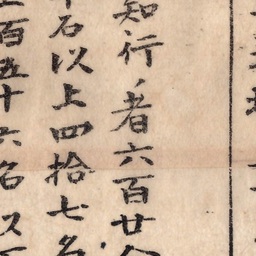 知行ノ者六百廿
石以上四拾七名
百五十六名又